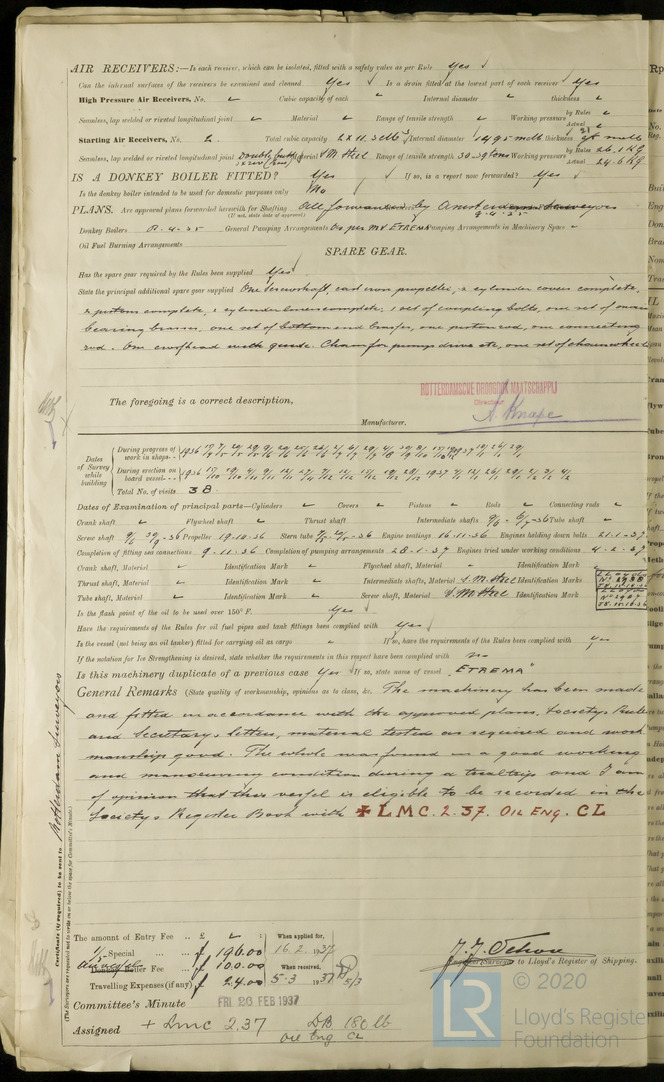 AIR RECEIVERS:—Is each receiver, which can be isolated, fitted with a safety valve as per Rule Yes
Can the internal surfaces of the receivers be examined and cleaned Yes Is a drain fitted at the lowest part of each receiver Yes
High Pressure Air Receivers, No. Cubic capacity of each Internal diameter thickness
Seamless, lap welded or riveted longitudinal joint Material Range of tensile strength Working pressure by Rules Actual
Starting Air Receivers, No. 2. Total cubic capacity 2 x 11.3 Internal diameter 1495 m/m thickness
Seamless, lap welded or riveted longitudinal joint Material S M Steel Range of tensile strength 30-39 tons Working pressure by Rules 26.1 KG Actual 24.6 KG
IS A DONKEY BOILER FITTED? Yes If so, is a report now forwarded? Yes
Is the donkey boiler intended to be used for domestic purposes only No
PLANS. Are approved plans forwarded herewith for Shafting All forwarded by Amsterdam Surveyors
(If not, state date of approval) 9.4.35
Donkey Boilers General Pumping Arrangements As per MV ETREMA Pumping Arrangements in Machinery Space
Oil Fuel Burning Arrangements
SPARE GEAR.
Has the spare gear required by the Rules been supplied Yes
State the principal additional spare gear supplied One screwshaft, cast iron propeller, 2 cylinder covers complete,
2 pistons complete, 2 cylinder liners complete, 1 set of coupling bolts, one set of main
bearing brasses, one set of bottom end brasses, one piston rod, one connecting
rod. One crosshead with guide. Chain for pump drive etc, one set of chainwheels
The foregoing is a correct description,
ROTTERDAMSCHE DROOGDOK MAATSCHAPPIJ
Directeur
Manufacturer.
Dates of Survey while building
During progress of work in shops-- 1936
During erection on board vessel--- 1936 1937
Total No. of visits 38
Dates of Examination of principal parts—Cylinders Covers Pistons Rods Connecting rods
Crank shaft Flywheel shaft Thrust shaft Intermediate shafts Tube shaft
Screw shaft Propeller 19-10-36 Stern tube Engine seatings 16-11-36 Engines holding down bolts 21-1-37
Completion of fitting sea connections 9-11-36 Completion of pumping arrangements 28-1-37 Engines tried under working conditions 4-2-37
Crank shaft, Material Identification Mark Flywheel shaft, Material Identification Mark
Thrust shaft, Material Identification Mark Intermediate shafts, Material S.M. Steel Identification Marks
Tube shaft, Material Identification Mark Screw shaft, Material S M Steel Identification Mark
Is the flash point of the oil to be used over 150° F. Yes
Have the requirements of the Rules for oil fuel pipes and tank fittings been complied with Yes
Is the vessel (not being an oil tanker) fitted for carrying oil as cargo If so, have the requirements of the Rules been complied with Yes
If the notation for Ice Strengthening is desired, state whether the requirements in this respect have been complied with No
Is this machinery duplicate of a previous case Yes If so, state name of vessel "ETREMA"
General Remarks (State quality of workmanship, opinions as to class, &c. The machinery has been made
and fitted in accordance with the approved plans, Society's Rules
and Secretary's letters, material tested as required and work
manship good. The whole was found in a good working
and manoeuvring condition during a trial trip and I am
of opinion that this vessel is eligible to be recorded in the
Society's Register Book with ✠ LMC. 2. 37. OIL ENG. CL
Certificate (if required) to be sent to Rotterdam Surveyors
(The Surveyors are requested not to write on or below the space for Committee's Minute.)
The amount of Entry Fee .. £ When applied for,
Special ... ... 196.00 16.2.1937
Donkey Boiler Fee ... 100.00 When received,
Travelling Expenses (if any) 24.00 5.3 1937
Engineer Surveyor to Lloyd's Register of Shipping.
Committee's Minute FRI 26 FEB 1937
Assigned + LMC 2.37 DB 180 lb
Oil Eng CL
© 2020
LR Lloyd's Register
Foundation